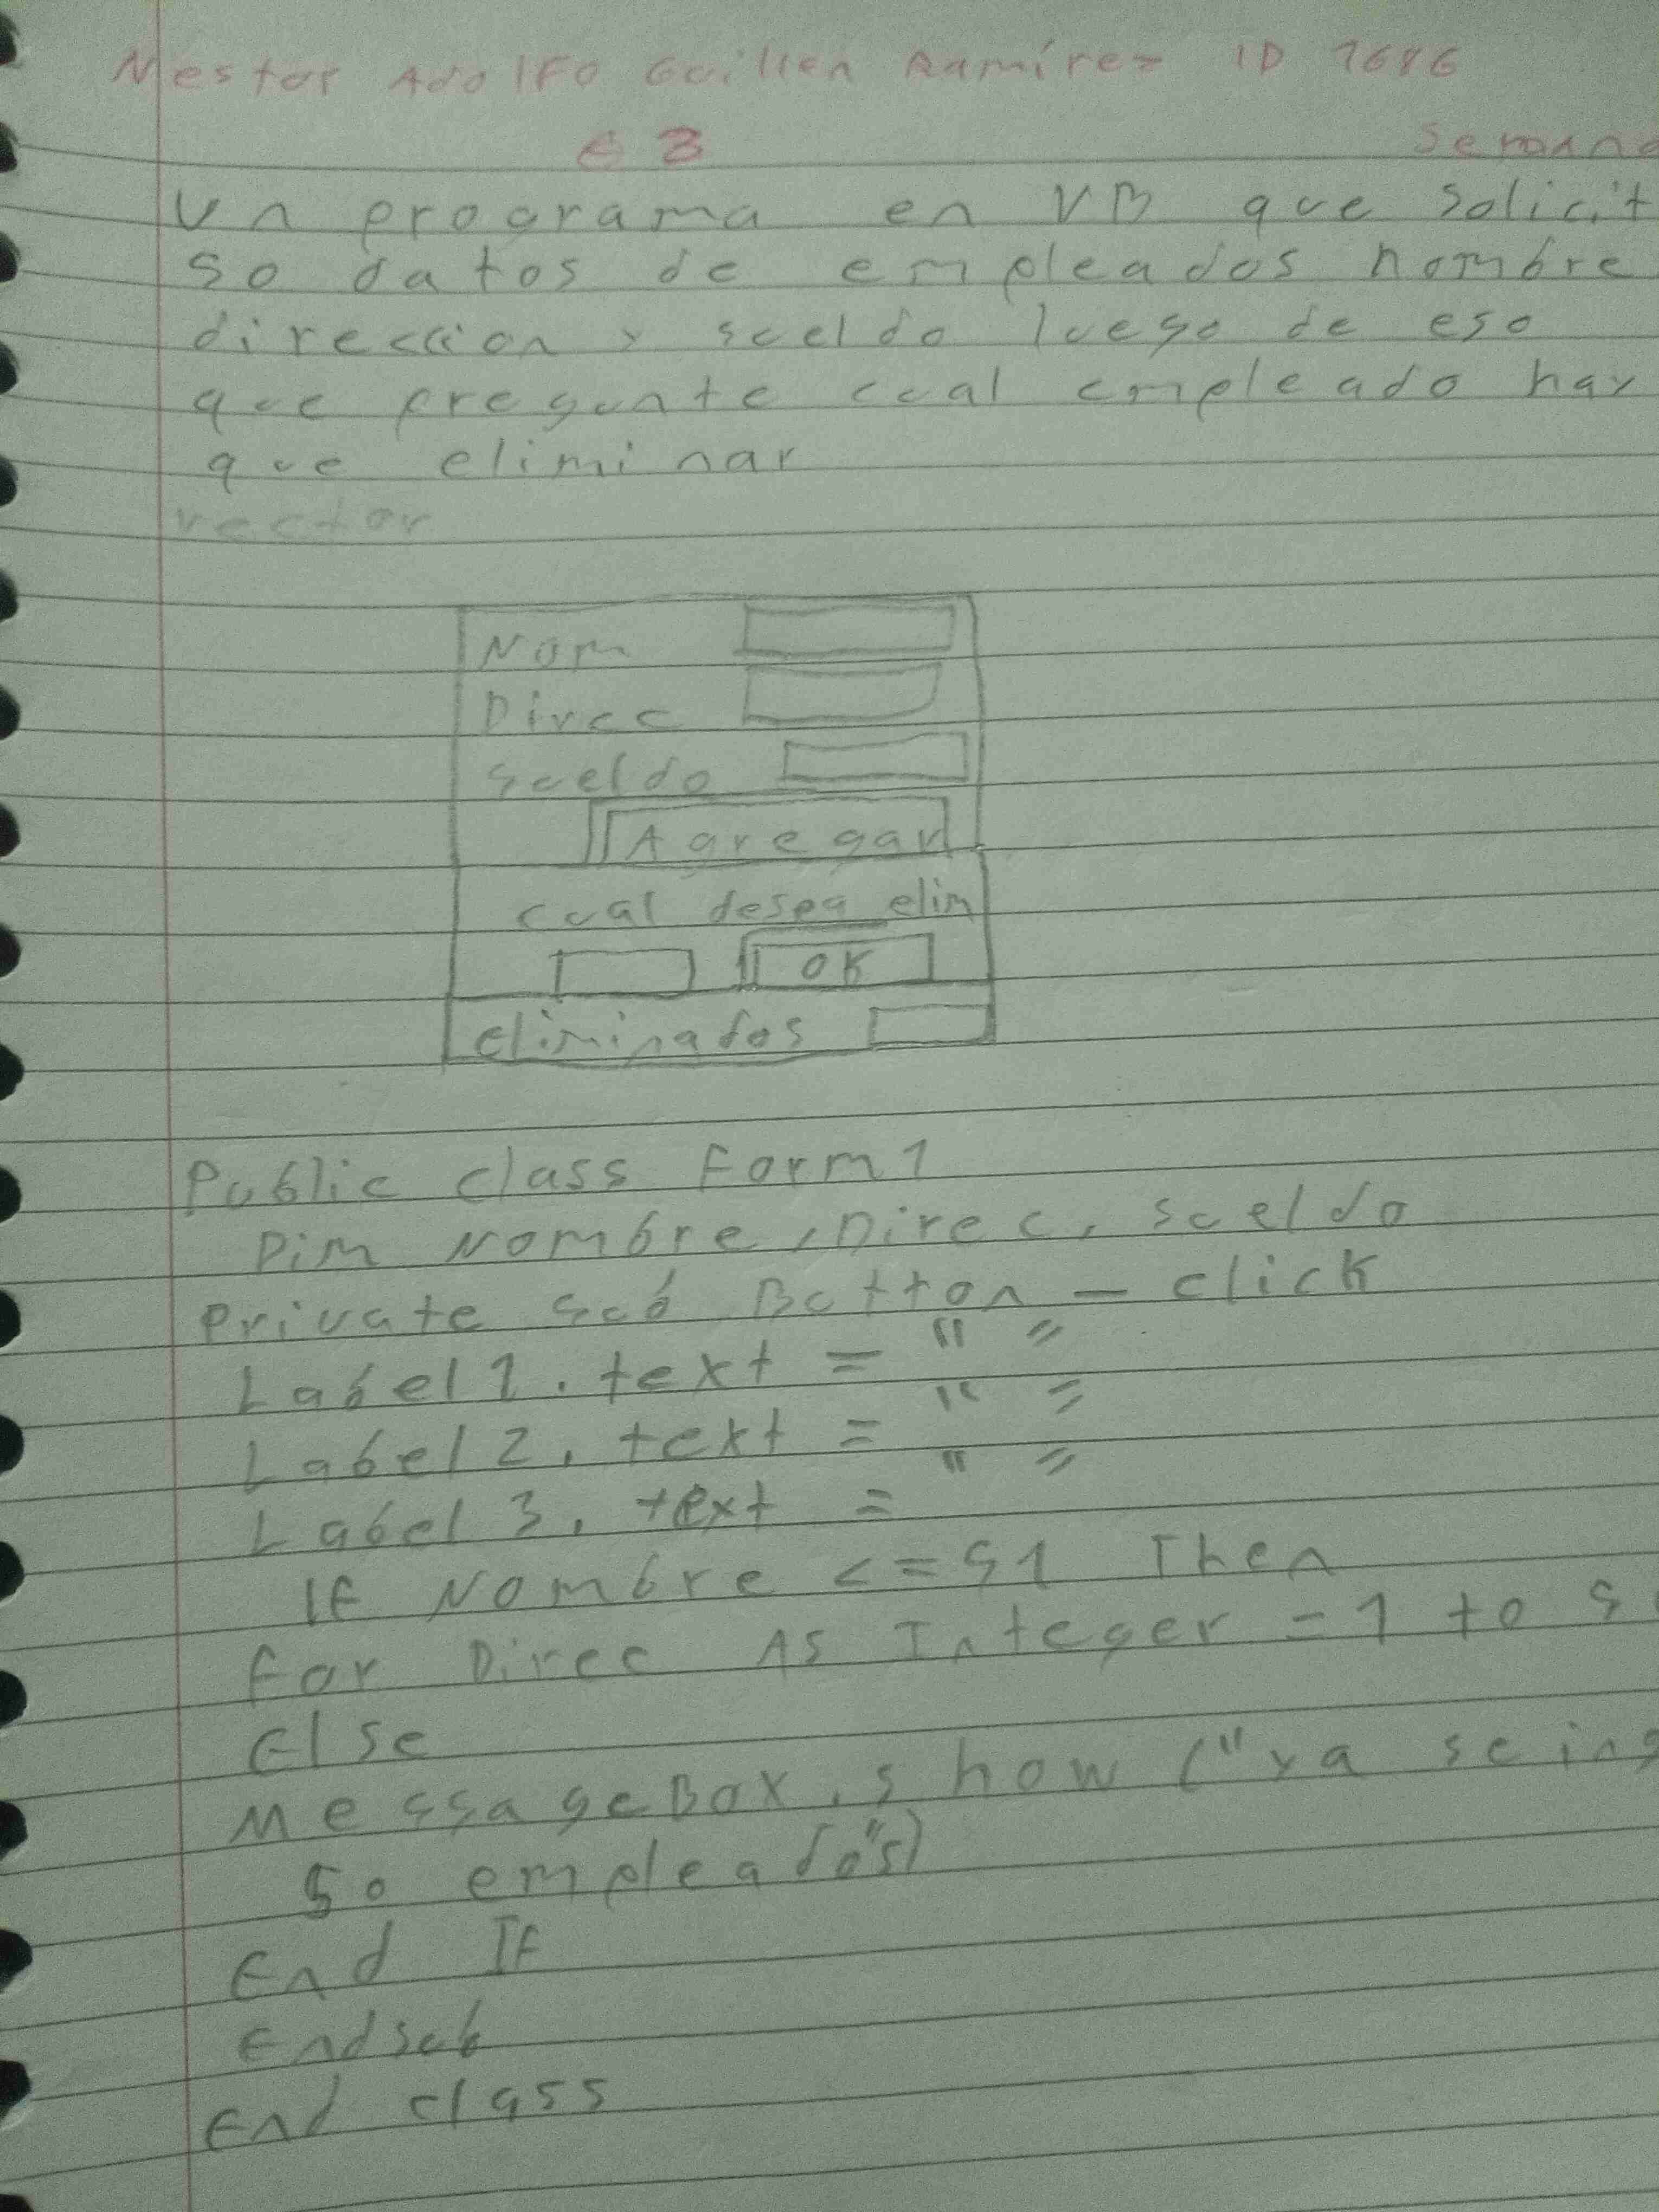 Nestor Adolfo Guillen Ramírez ID 1686
G 3 Semana
Un programa en VB que solicit
50 datos de empleados nombre
direccion y sueldo luego de eso
que pregunte cual empleado hay
que eliminar
vector
Nom
Direc
Sueldo
Agregar
cual desea elim
OK
Eliminados
Public class Form1
Dim Nombre, Direc, sueldo
Private sub Button - click
Label1.text = " "
Label2.text = " "
Label3.text = " "
If Nombre <= 51 Then
For Direc As Integer = 1 to 5
Else
MessageBox.show ("ya se ing
50 empleados")
End If
End sub
End class